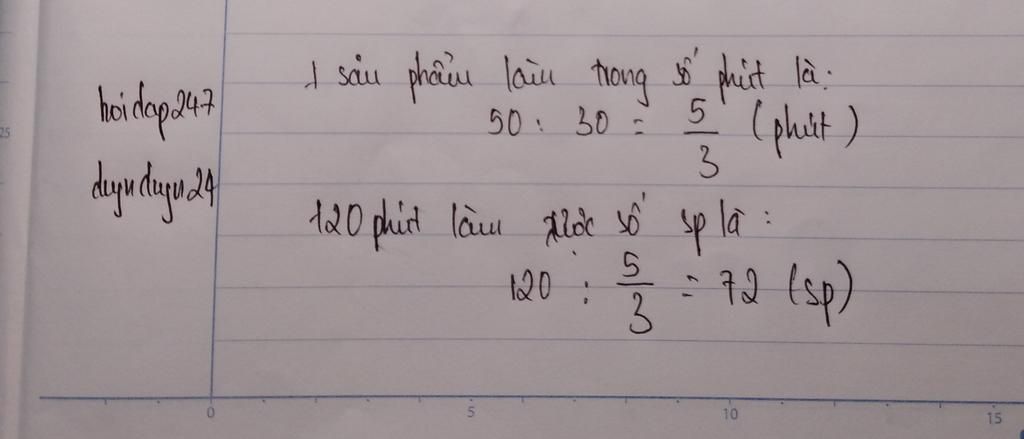 1 sản phẩm làm trong số phút là:
hoidap247
50 : 30 = 5/3 (phút)
duynduyn24
120 phút làm được số sp là :
120 : 5/3 = 72 (sp)
25
0 5 10 15